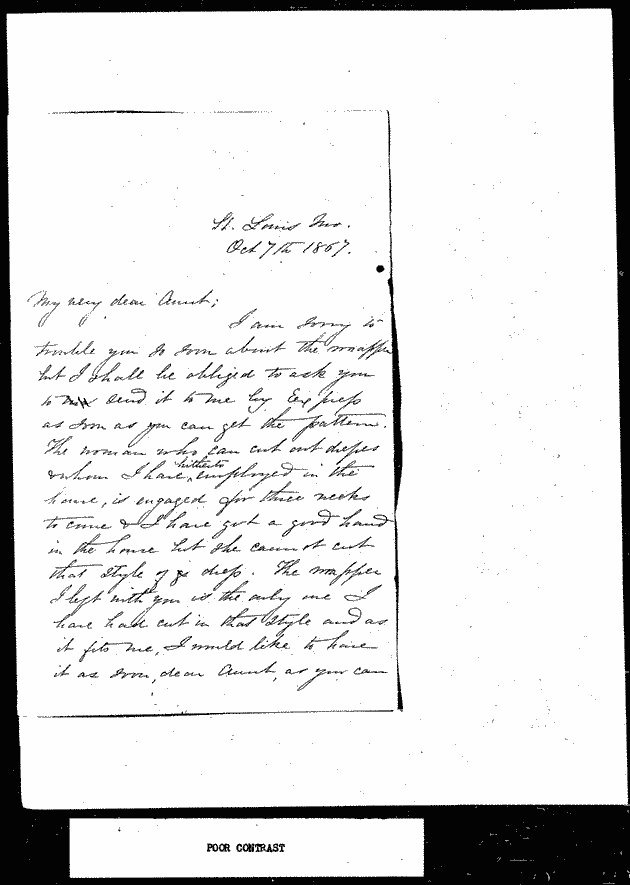 St. Louis Mo.
Oct 7th 1867.
My very dear Aunt;
I am sorry to
trouble you so soon about the wrapper
but I shall be obliged to ask you
to send it to me by Express
as soon as you can get the pattern.
The woman who can cut out dresses
& whom I have hitherto employed in the
house, is engaged for three weeks
to come & I have got a good hand
in the house but she cannot cut
that style of dress. The wrapper
I left with you is the only one I
have had cut in that style and as
it fits me, I would like to have
it as soon, dear Aunt, as you can
POOR CONTRAST